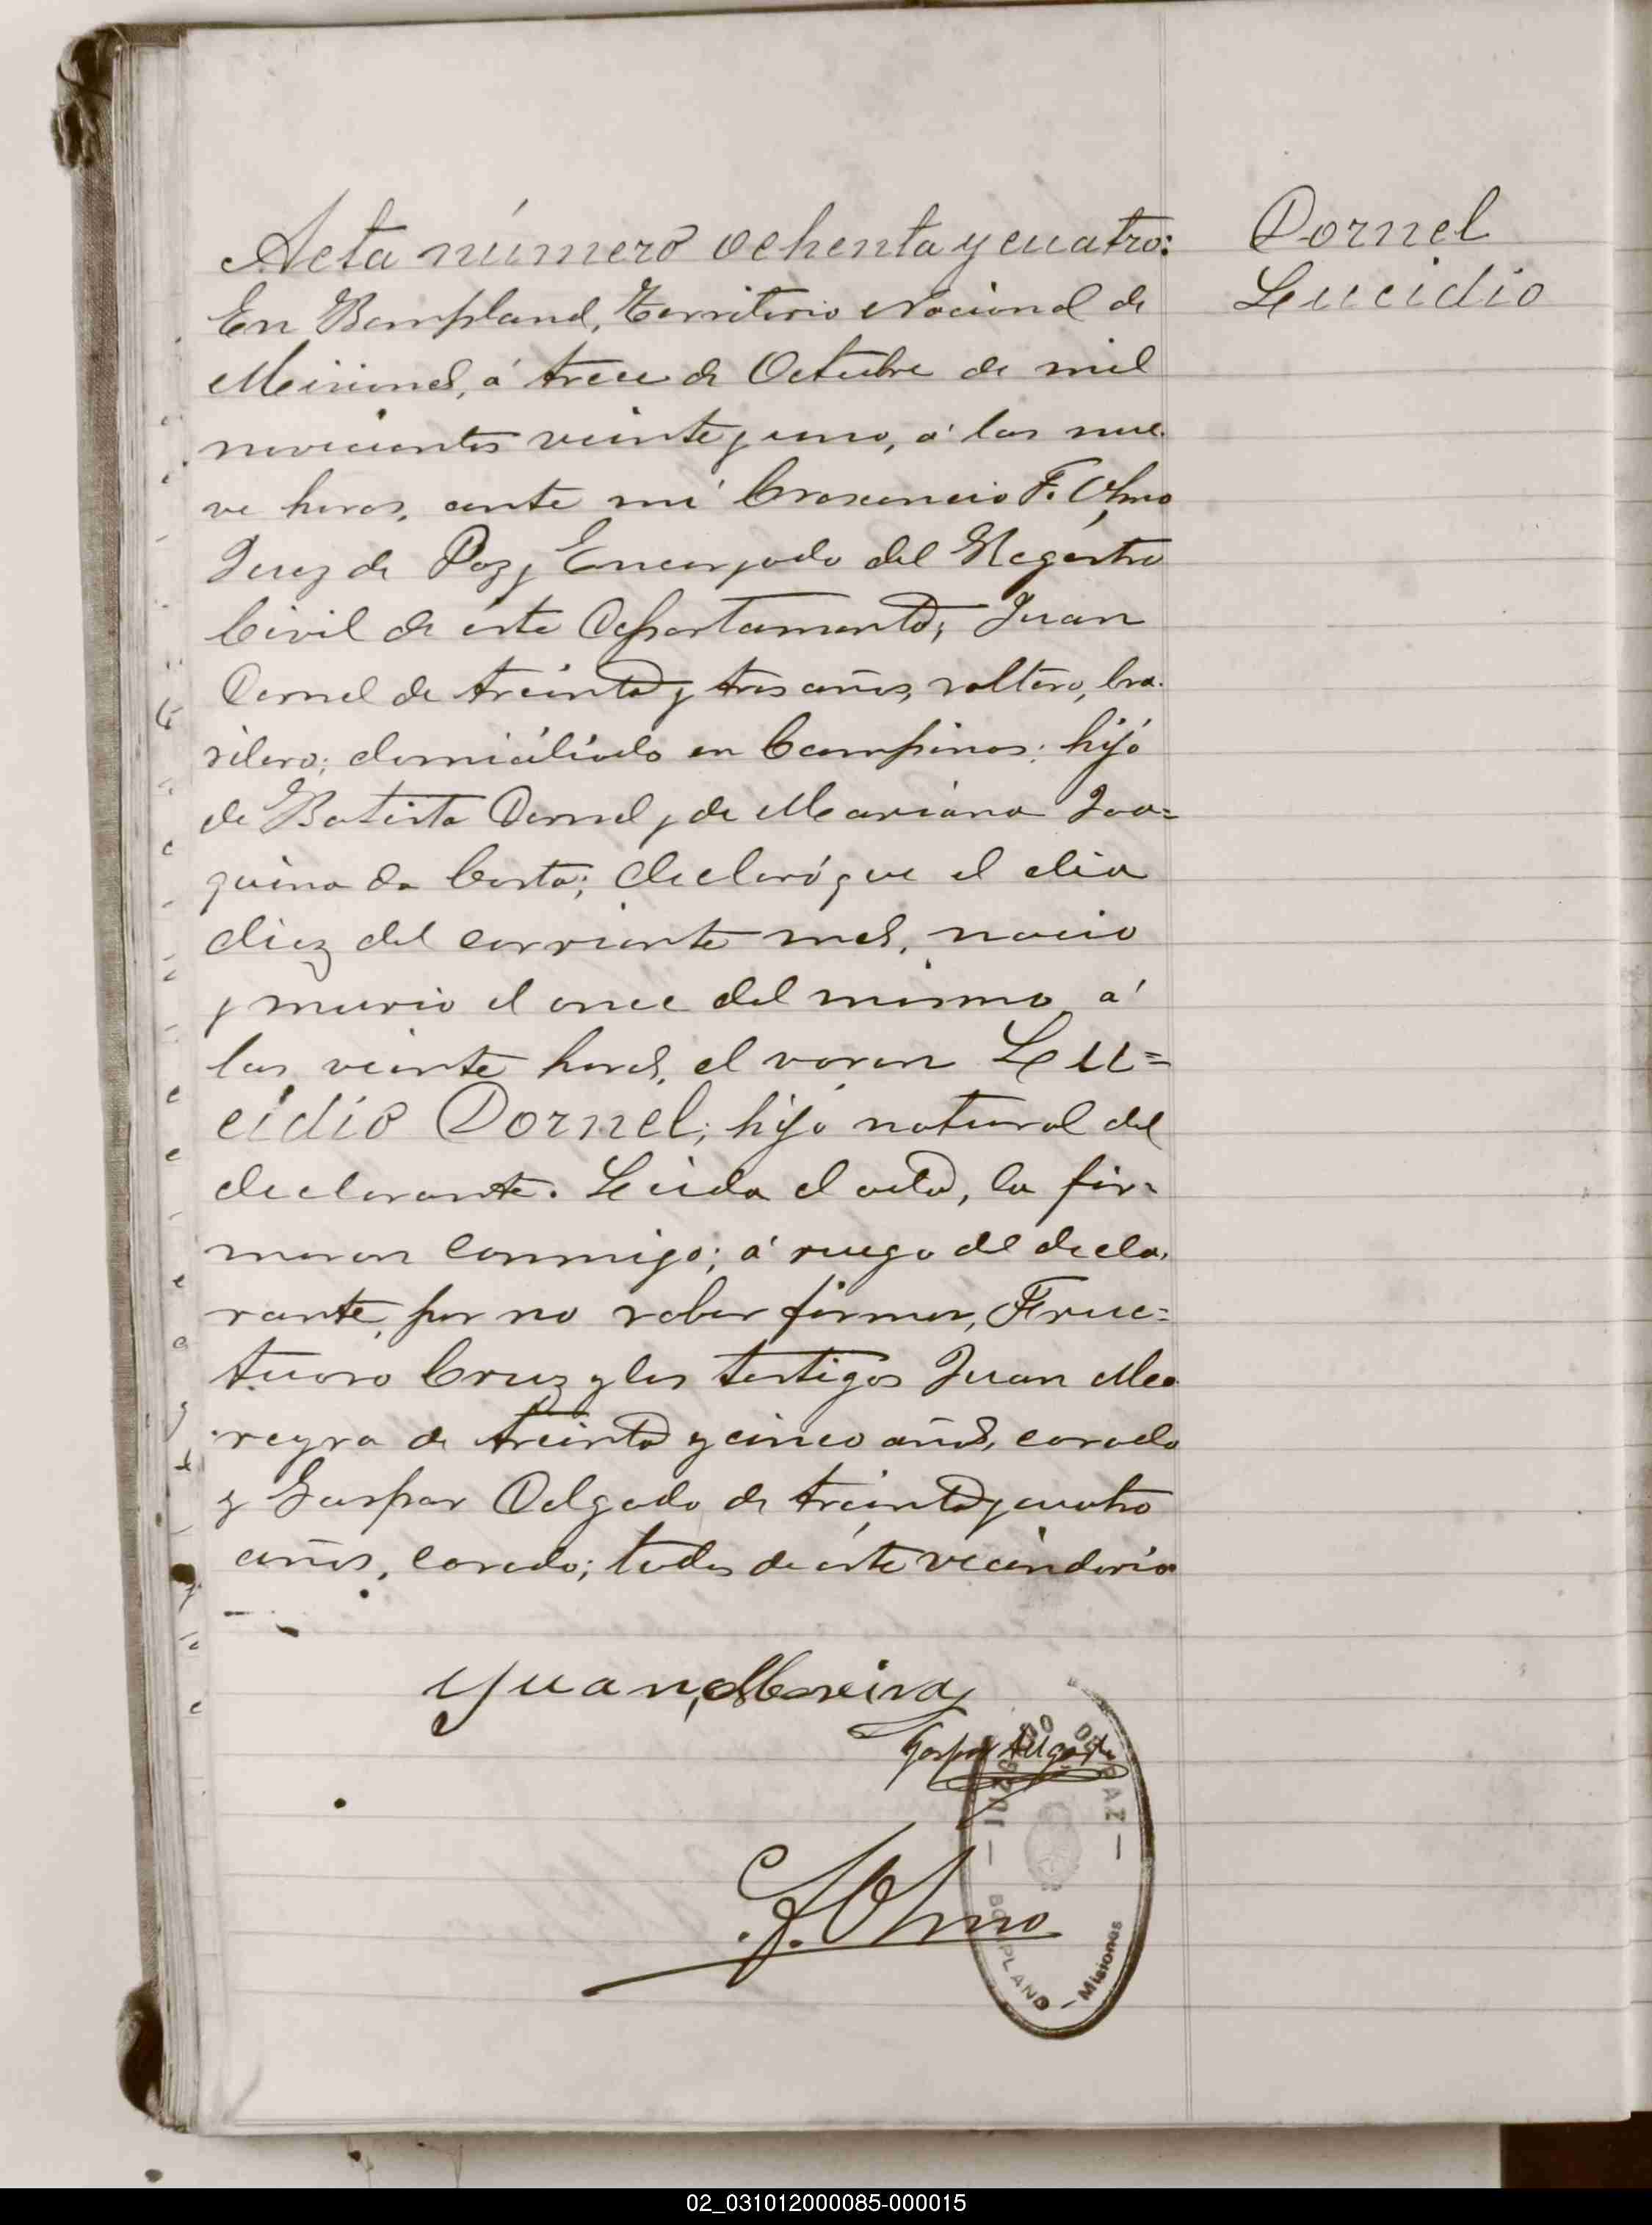 Acta número ochenta y cuatro:
Dornel
Lucidio
En Bompland, Territorio Nacional de
Misiones, á trece de Octubre de mil
novecientos veinte y uno, á las nue-
ve horas, ante mí Crescencio F. Olmo
Juez de Paz y Encargado del Registro
Civil de este Departamento; Juan
Dornel de treinta y tres años, soltero, bra-
silero; domiciliado en Campinas; hijo
de Batista Dornel y de Mariana Joa=
quina da Costa; declaró que el dia
diez del corriente mes, nacio
y murio el once del mismo á
las veinte horas, el varon Lu=
cidio Dornel; hijo natural del
declarante. Leida el acta, la fir-
maron conmigo; á ruego del decla-
rante, por no saber firmar, Fruc=
tuoso Cruz y los testigos Juan Mo
reyra de treinta y cinco años, casado
y Gaspar Delgado de treinta y cuatro
años, casado; todos de éste vecindario
Juan Moreira
Gaspar Delgado
C. F. Olmo
JUZGADO DE PAZ
BOMPLAND - Misiones
02_031012000085-000015